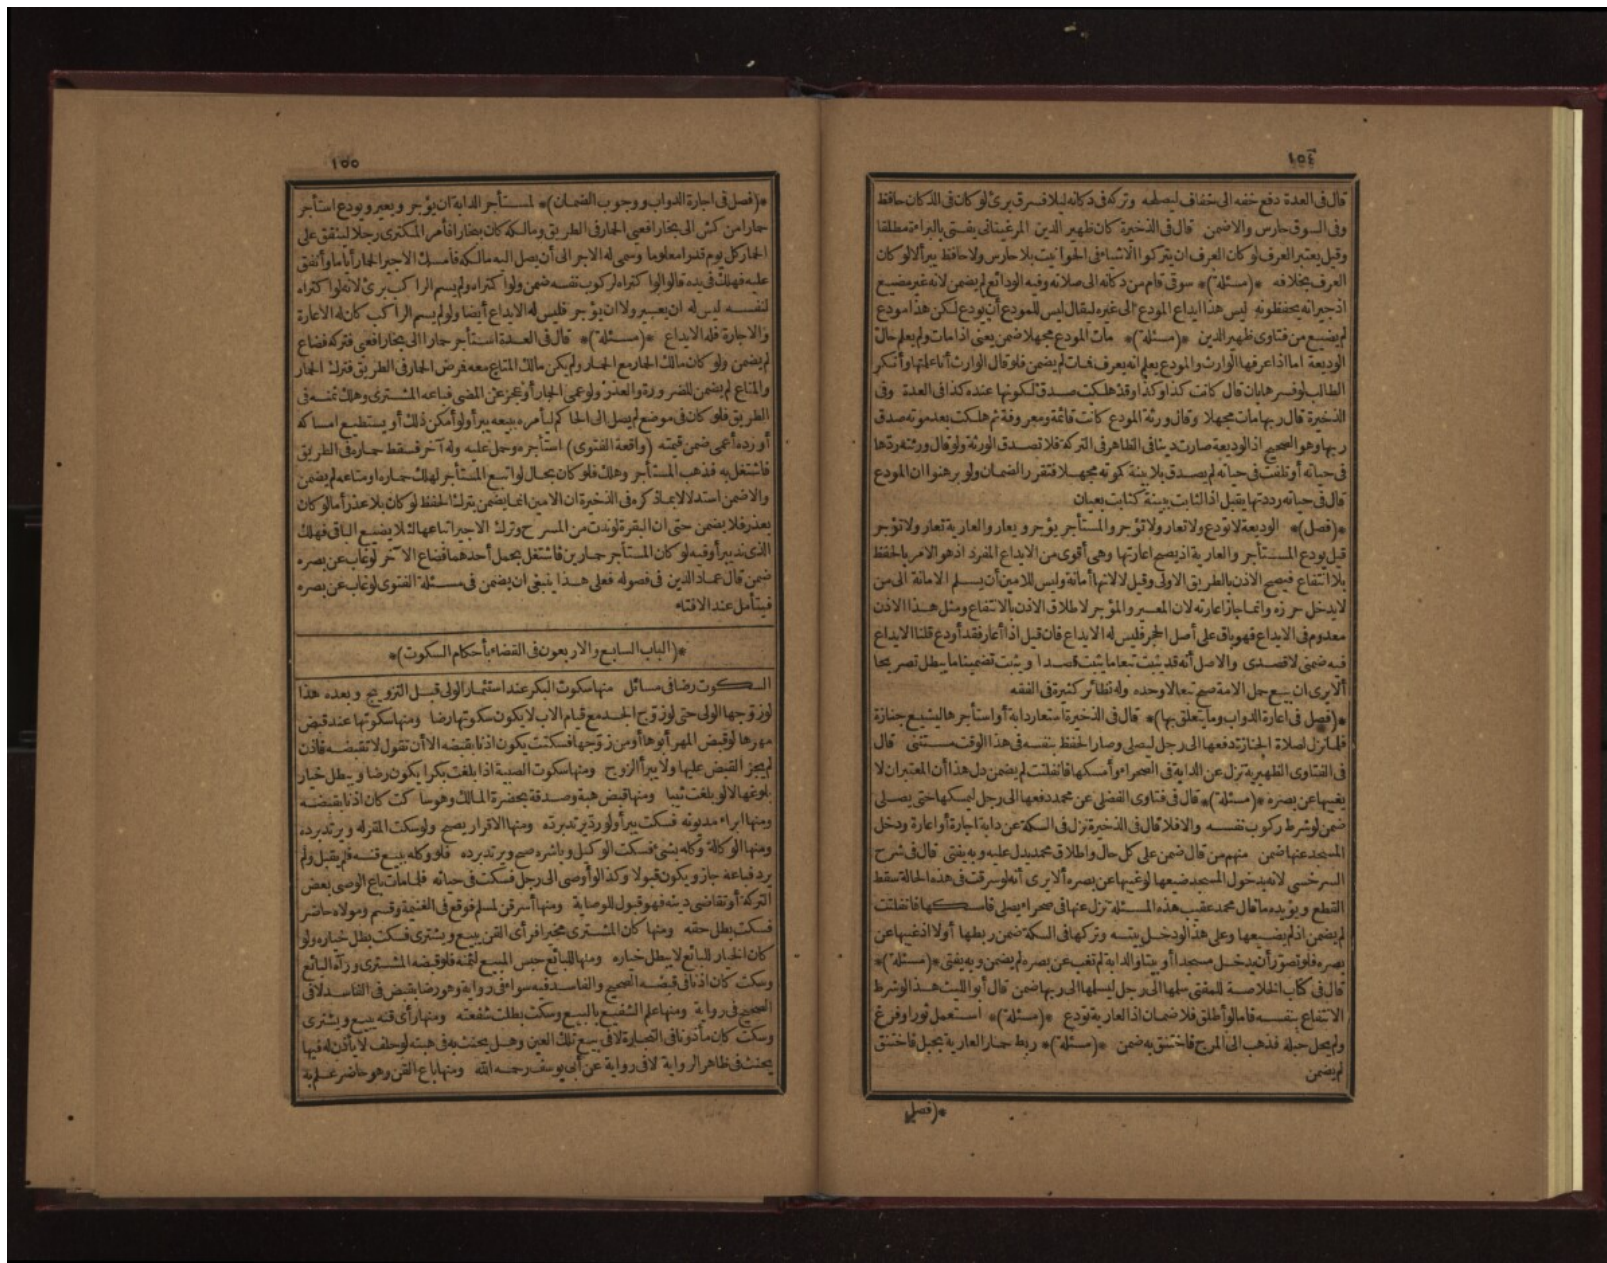 ١٥٤
قال فى العدة دفع خفه الى خفاف ليصلحه وتركه فى دكانه ليلا فسرق برئ لو كان فى الدكان حافظ
وفى السوق حارس والا ضمن قال فى الذخيرة كان ظهير الدين المرغينانى يفتى بالبراءة مطلقا
وقيل يعتبر العرف لو كان العرف ان يتركوا الاشياء فى الحوانيت بلا حارس ولا حافظ يبرأ لا لو كان
العرف بخلافه *(مسئلة)* سوقى قام من دكانه الى صلاته وفيه الودائع لم يضمن لانه غير مضيع
اذ جيرانه يحفظونه ليس هذا ايداع المودع الى غيره ليقال ليس للمودع أن يودع لكن هذا مودع
لم يضيع من فتاوى ظهير الدين *(مسئلة)* مات المودع مجهلا ضمن يعنى اذا مات ولم يعلم حال
الوديعة اما اذا عرفها الوارث والمودع يعلم انه يعرف فمات لم يضمن فلو قال الوارث أنا علمتها وأنكر
الطالب لو فسرها بان قال كانت كذا وكذا وقد هلكت صدق لكونها عنده كذا فى العدة وفى
الذخيرة قال ربها مات مجهلا وقال ورثة المودع كانت قائمة ومعروفة ثم هلكت بعد موته صدق
ربها وهو الصحيح اذ الوديعة صارت دينا فى الظاهر فى التركة فلا تصدق الورثة ولو قال ورثته ردها
فى حياته أو تلفت فى حياته لم يصدق بلا بينة كونه مجهلا فتقرر الضمان ولو برهنوا ان المودع
قال فى حياته رددتها يقبل اذ الثابت ببينة كثابت بعيان
*(فصل)* الوديعة لا تودع ولا تعار ولا تؤجر والمستأجر يؤجر ويعار والعارية تعار ولا تؤجر
قيل يودع المستأجر والعارية اذ يصح اعارتها وهى أقوى من الايداع المفرد اذ هو الامر بالحفظ
بلا انتفاع فيصح الاذن بالطريق الاولى وقيل لا لانها أمانة وليس للامين أن يسلم الامانة الى من
لا يدخل حرزه وانما جاز اعارته لان المعير والمؤجر لاطلاق الاذن بالانتفاع ومثل هذا الاذن
معدوم فى الايداع فهو باق على أصل الحجر فليس له الايداع فان قيل اذا أعار فقد أودع قلنا الايداع
فيه ضمنى لا قصدى والاصل أنه قد يثبت تبعا ما يثبت قصدا ويثبت تضمينا ما يبطل تصريحا
ألا يرى ان بيع حمل الامة صح تبعا لا وحده وله نظائر كثيرة فى الفقه
*(فصل فى اعارة الدواب وما يتعلق بها)* قال فى الذخيرة استعار دابة أو استأجرها ليشيع جنازة
فلما نزل لصلاة الجنازة دفعها الى رجل ليصلى وصار الحفظ بنفسه فى هذا الوقت مستثنى قال
فى الفتاوى الظهيرية نزل عن الدابة فى الصحراء وأمسكها فانفلتت لم يضمن دل هذا أن المعتبر ان لا
يغيبها عن بصره *(مسئلة)* قال فى فتاوى الفضلى عن محمد دفعها الى رجل ليمسكها حتى يصلى
ضمن لو شرط ركوب نفسه والا فلا قال فى الذخيرة نزل فى السكة عن دابة اجارة أو اعارة ودخل
المسجد عنها ضمن منهم من قال ضمن على كل حال واطلاق محمد يدل عليه وبه يفتى قال فى شرح
السرخسى لانه بدخول المسجد ضيعها لو غيبها عن بصره ألا يرى أنه لو سرقت فى هذه الحالة سقط
القطع ويؤيده ما قال محمد عقيب هذه المسئلة نزل عنها فى صحراء يصلى فامسكها فانفلتت
لم يضمن اذ لم يضيعها وعلى هذا لو دخل بيته وتركها فى السكة ضمن ربطها أولا اذ غيبها عن
بصره فلو تصور أن يدخل مسجدا أو بيتا والدابة لم تغب عن بصره لم يضمن وبه يفتى *(مسئلة)*
قال فى كتاب الخلاصة للمفتى سلمها الى رجل ليسلمها الى ربها ضمن قال أبو الليث هذا لو شرط
الانتفاع بنفسه فاما لو أطلق فلا ضمان اذ العارية تودع *(مسئلة)* استعمل ثورا وفرغ
ولم يحل حبله فذهب الى المرج فاختنق به ضمن *(مسئلة)* ربط حمار العارية بحبل فاختنق
لم يضمن
*(فصل
١٥٥
*(فصل فى اجارة الدواب ووجوب الضمان)* لمستأجر الدابة ان يؤجر ويعير ويودع استأجر
حمارا من كش الى بخارا فعيى الحمار فى الطريق ومالكه كان ببخارا فأمر المكترى رجلا لينفق على
الحمار كل يوم قدرا معلوما وسمى له الاجر الى أن يصل اليه مالكه فامسك الاجير الحمار أياما وأنفق
عليه فهلك فى يده قالوا لو اكتراه لركوب نفسه ضمن ولو اكتراه ولم يسم الراكب برئ لانه لو اكتراه
لنفسه ليس له ان يعير ولا ان يؤجر فليس له الايداع أيضا ولو لم يسم الراكب كان له الاعارة
والاجارة فله الايداع *(مسئلة)* قال فى العدة استأجر حمارا الى بخارا فعيى فتركه فضاع
لم يضمن ولو كان مالك الحمار مع الحمار ولم يكن مالك المتاع معه فمرض الحمار فى الطريق فترك الحمار
والمتاع لم يضمن للضرورة والعذر ولو عمى الحمار أو عجز عن المضى فباعه المشترى وهلك ثمنه فى
الطريق فلو كان فى موضع لم يصل الى الحاكم ليأمره ببيعه يبرأ ولو أمكن ذلك أو يستطيع امساكه
أو رده أعمى ضمن قيمته (واقعة الفتوى) استأجره وحمل عليه وله آخر فسقط حماره فى الطريق
فاشتغل به فذهب المستأجر وهلك فلو كان بحال لو اتبع المستأجر لهلك حماره ومتاعه لم يضمن
والا ضمن استدلالا بما ذكره فى الذخيرة ان الامين انما يضمن بترك الحفظ لو كان بلا عذر أما لو كان
بعذر فلا يضمن حتى ان البقرة لو ندت من المسرح وترك الاجير اتباعها لئلا يضيع الباقى فهلك
الذى ند يبرأ وفيه لو كان المستأجر حمارين فاشتغل بحمل أحدهما فضاع الآخر لو غاب عن بصره
ضمن قال عماد الدين فى فصوله فعلى هذا ينبغى ان يضمن فى مسئلة الفتوى لو غاب عن بصره
فيتأمل عند الافتاء
*(الباب السابع والاربعون فى القضاء بأحكام السكوت)*
السكوت رضا فى مسائل منها سكوت البكر عند استئمار الولى قبل التزويج وبعده هذا
لو زوجها الولى حتى لو زوج الجد مع قيام الاب لا يكون سكوتها رضا ومنها سكوتها عند قبض
مهرها لو قبض المهر أبوها أو من زوجها فسكتت يكون اذنا بقبضه الا أن تقول لا تقبضه فاذن
لم يجز القبض عليها ولا يبرأ الزوج ومنها سكوت الصبية اذا بلغت بكرا يكون رضا ويبطل خيار
بلوغها لا لو بلغت ثيبا ومنها قبض هبة وصدقة بحضرة المالك وهو ساكت كان اذنا بقبضه
ومنها ابراء مديونه فسكت يبرأ ولو رد يرتد برده ومنها الاقرار يصح ولو سكت المقر له ويرتد برده
ومنها الوكالة وكله بشئ فسكت الوكيل وباشره صح ويرتد برده فلو وكله ببيع قنه فلم يقبل ولم
يرد فباعه جاز ويكون قبولا وكذا لو أوصى الى رجل فسكت فى حياته فلما مات باع الوصى بعض
التركة أو تقاضى دينه فهو قبول للوصاية ومنها أسر قن لمسلم فوقع فى الغنيمة وقسم ومولاه حاضر
فسكت بطل حقه ومنها كان المشترى مخيرا فرأى القن يبيع ويشترى فسكت بطل خياره ولو
كان الخيار للبائع لا يبطل خياره ومنها للبائع حبس المبيع لثمنه فلو قبضه المشترى ورآه البائع
وسكت كان اذنا فى قبضه الصحيح والفاسد فيه سواء فى رواية وهو رضا بقبض فى الفاسد لا فى
الصحيح فى رواية ومنها علم الشفيع بالبيع وسكت بطلت شفعته ومنها رأى قنه يبيع ويشترى
وسكت كان مأذونا فى التجارة لا فى بيع تلك العين وهل يحنث به فى هبته لو حلف لا يأذن له فيها
يحنث فى ظاهر الرواية لا فى رواية عن أبى يوسف رحمه الله ومنها باع القن وهو حاضر علم به